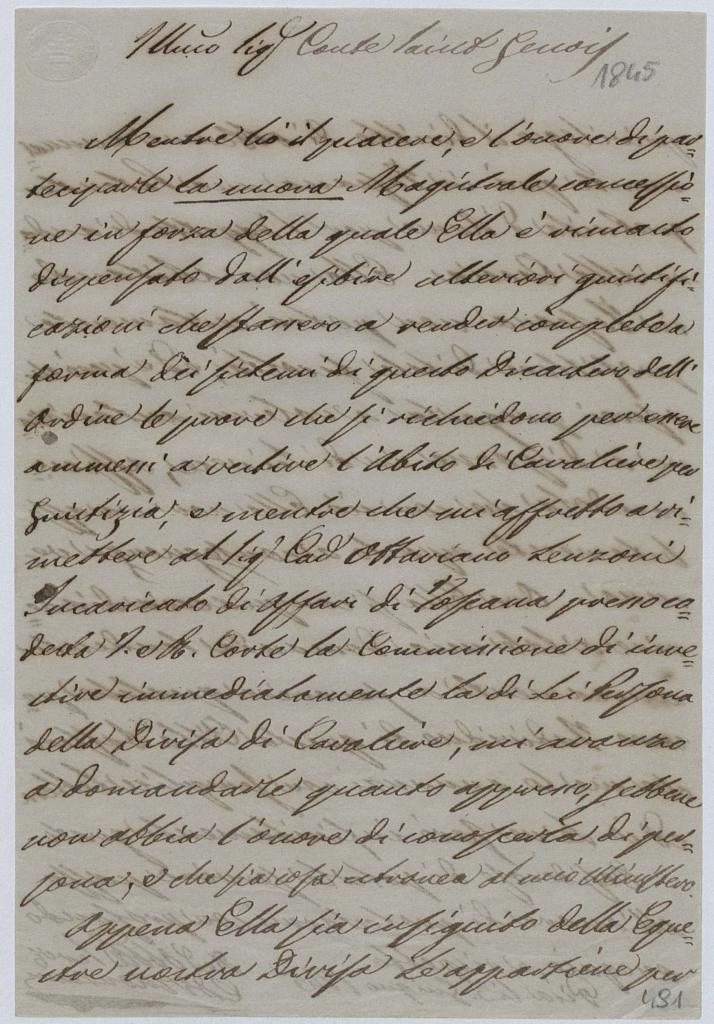 Illmo Sigr Conte Saint Genois
1845
Mentre hò il piacere, e l'onore di par=
teciparle la nuova Magistrale concessio=
ne in forza della quale Ella è rimasto
dispensato dall'esibire ulteriori giustifi=
cazioni che stassero a render complete a
forma dei sistemi di questo Dicastero dell'
Ordine le prove che si richiedono per essere
ammessi a vestire l'Abito di Cavaliere per
Giustizia, e mentre che mi affretto a ri=
mettere al Sigr Cav Ottaviano Lenzoni
Incaricato di Affari di Toscana presso co=
desta I. e R. Corte la Commissione di inve=
stire immediatamente la di Lei Persona
della Divisa di Cavaliere, mi avanzo
a domandarle quanto appresso, sebbene
non abbia l'onore di conoscerla di per=
sona, e che sia cosa estranea al mio Ministero.
Appena Ella sia insignito della Eque=
stre nostra Divisa Le appartiene per
431